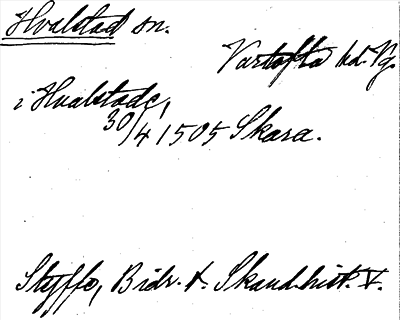 Hvalstad sn.
Vartofta hd. Vg.
i Hualstade,
30/4 1505 Skara.
Styffe, Bidr. t. Skand. hist. V.